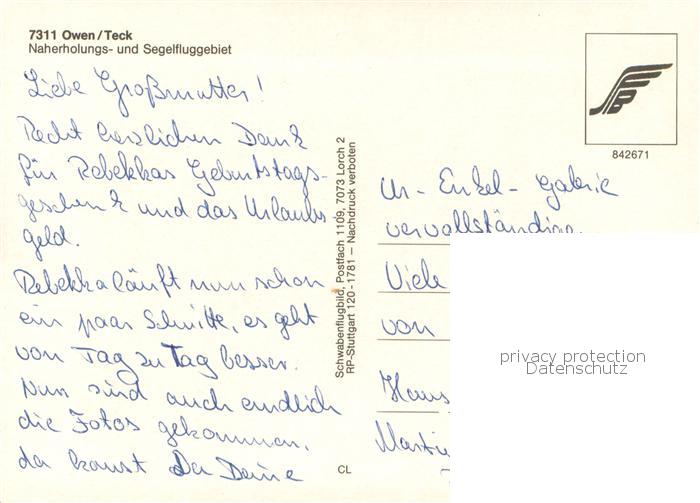 7311 Owen/Teck
Naherholungs- und Segelfluggebiet
Liebe Großmutter!
Recht herzlichen Dank
für Rebekkas Geburtstags-
geschenk und das Urlaubs-
geld.
Rebekka läuft nun schon
ein paar Schritte, es geht
von Tag zu Tag besser.
Nun sind auch endlich
die Fotos gekommen,
da kanst Du Deine
Schwabenflugbild, Postfach 1109, 7073 Lorch 2
RP-Stuttgart 120-1781 – Nachdruck verboten
CL
842671
Ur-Enkel-Galerie
vervollständigen.
Viele
von
Hans
Martin
privacy protection
Datenschutz